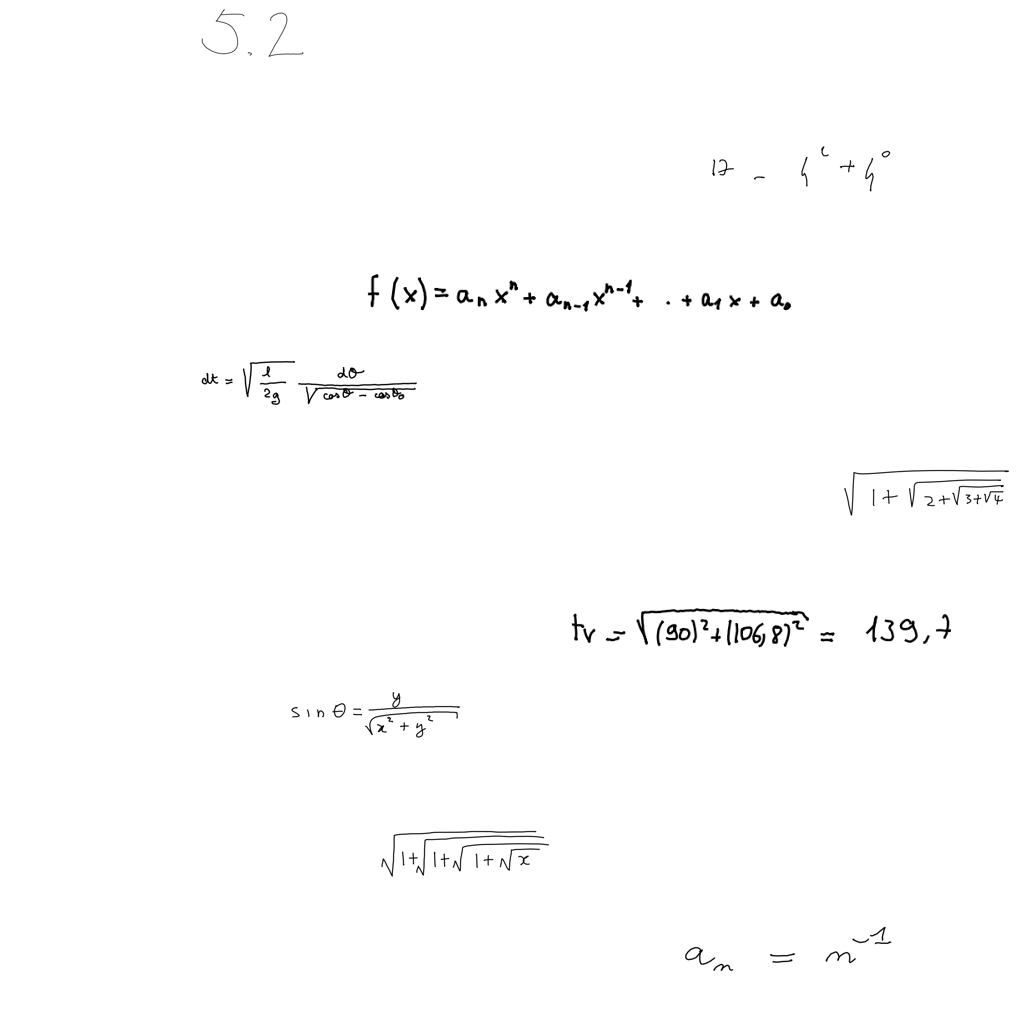 5.2
17 - 4^c + 4^0
f(x) = a_n x^n + a_{n-1} x^{n-1} + . + a_1 x + a_0
dt = \sqrt{\frac{l}{2g}} \frac{d\theta}{\sqrt{\cos\theta - \cos\theta_0}}
\sqrt{1+\sqrt{2+\sqrt{3+\sqrt{4}}}}
tv = \sqrt{(90)^2+(106,8)^2} = 139,7
sin θ = \frac{y}{\sqrt{x^2+y^2}}
\sqrt{1+\sqrt{1+\sqrt{1+\sqrt{x}}}}
a_n = n^{-1}